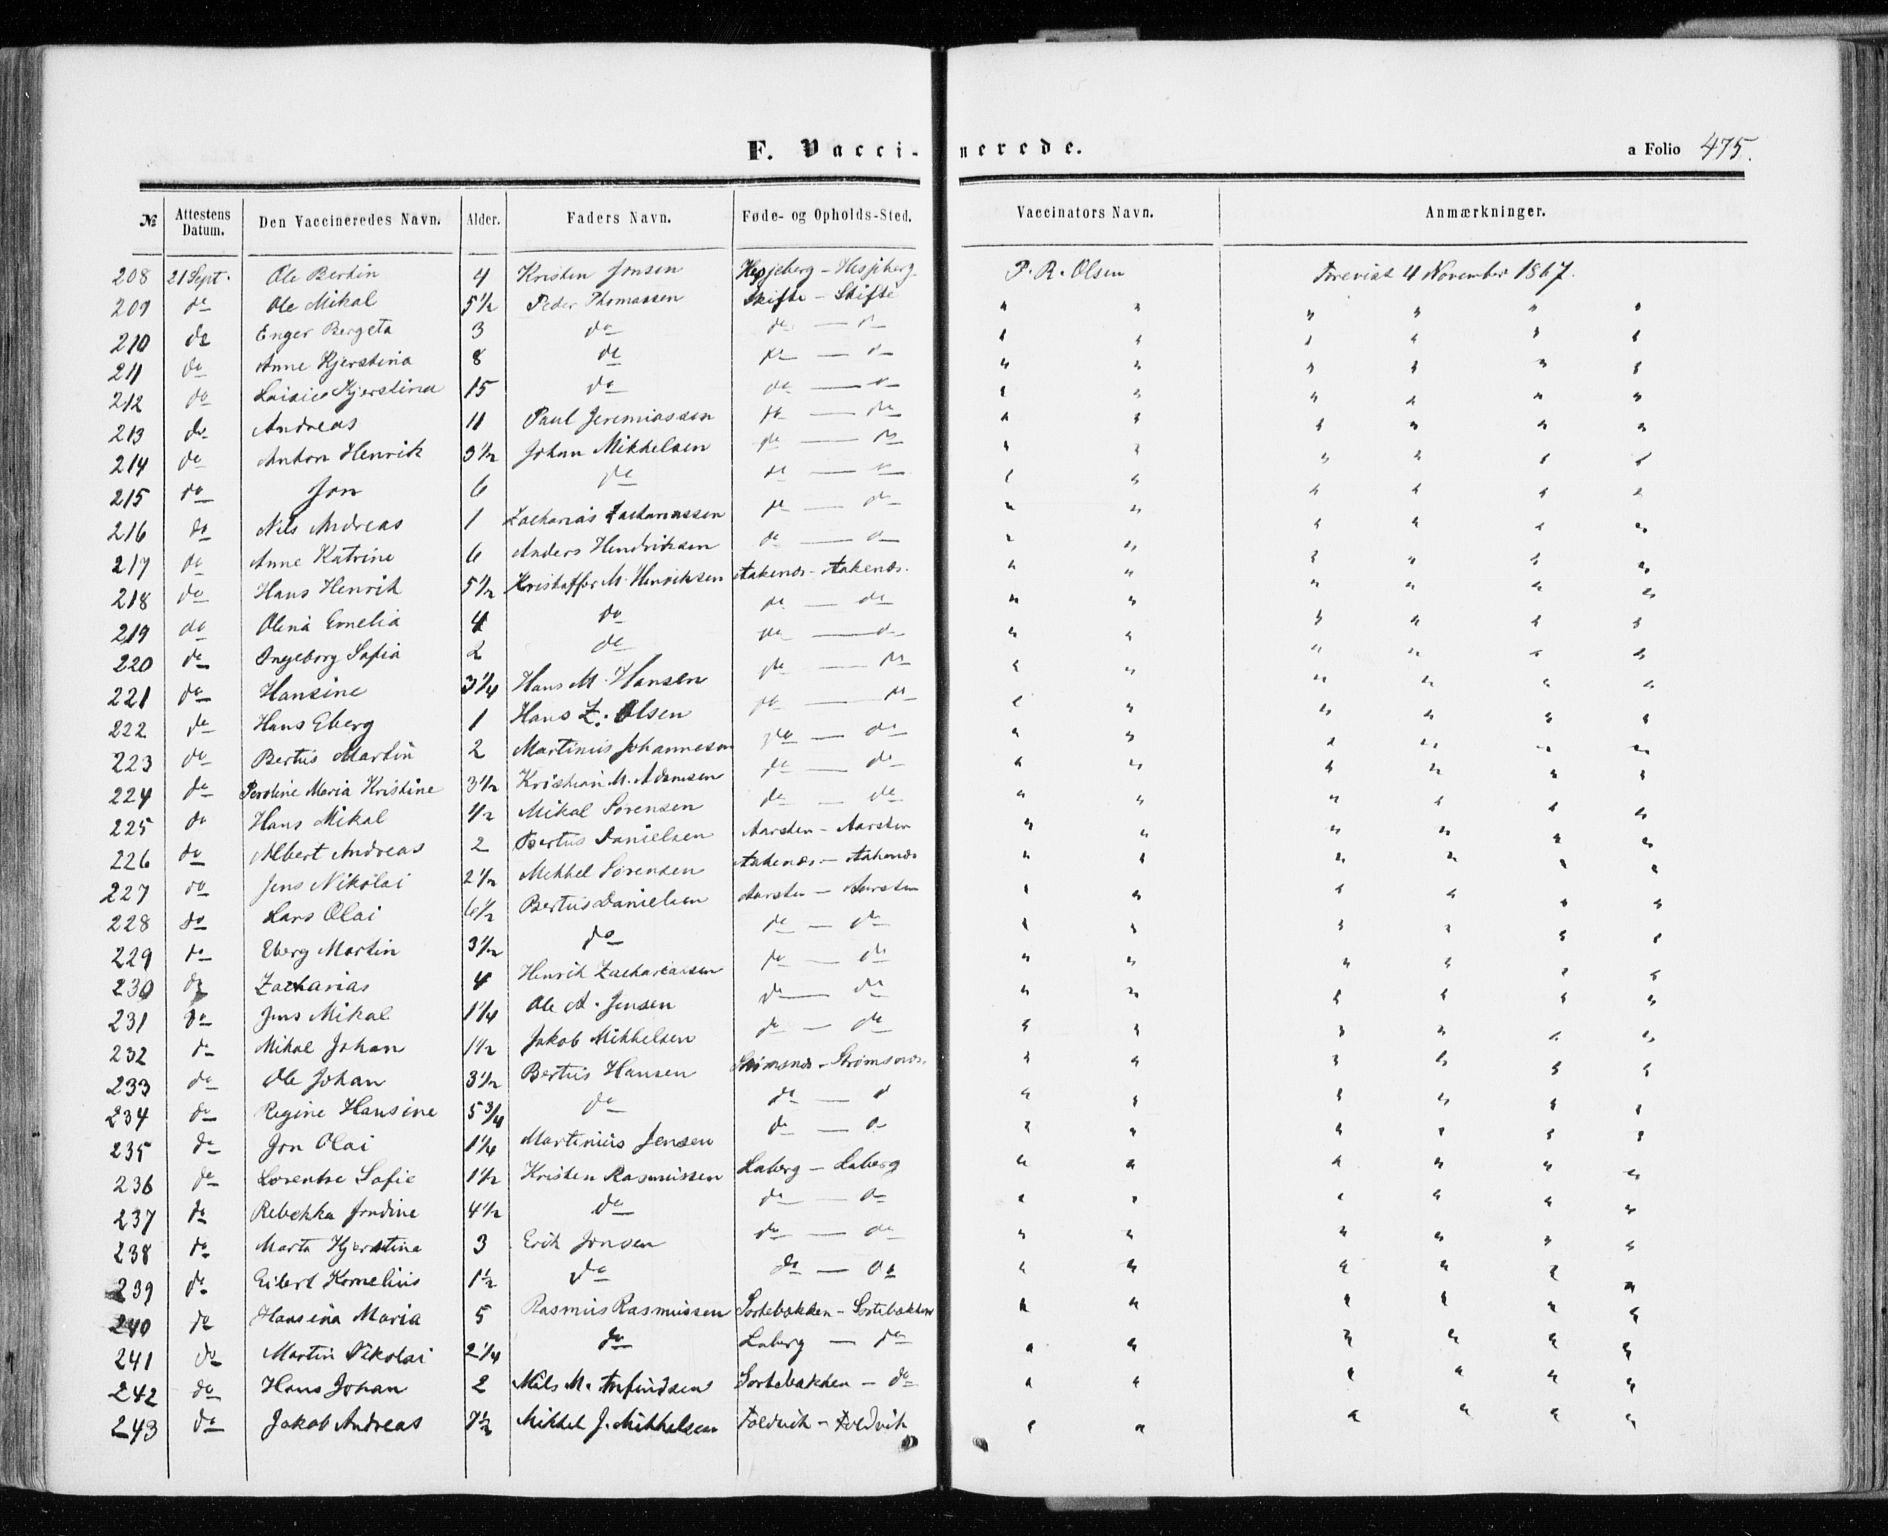 F. Vaccinerede. a Folio 475.
№ Attestens Datum. Den Vaccineredes Navn. Alder. Faders Navn. Føde- og Opholds-Sted. Vaccinators Navn. Anmærkninger.
208 21 Sept. Ole Bertin 4 Kristen Jonsen Hesjeberg - Hesjeberg P. R. Olsen Forevist 4 November 1867.
209 do Ole Mikal 5 1/2 Peder Thomassen Skifte - Skifte " " " " " "
210 do Enger Bergeta 3 do do - do " " " " " "
211 do Anne Kjerstina 8 do do - do " " " " " "
212 do Kjerstina 15 do do - do " " " " " "
213 do Andreas 11 Paul Jeremiassen do - do " " " " " "
214 do Anton Henrik 3 1/2 Johan Mikkelsen do - do " " " " " "
215 do Jon 6 do do - do " " " " " "
216 do Nils Andreas 1 Zacharias Zachariassen do - do " " " " " "
217 do Anne Katrine 6 Anders Hendriksen do - do " " " " " "
218 do Hans Henrik 5 1/2 Kristoffer M. Henriksen Aakenes - Aakenes. " " " " " "
219 do Olina Emelia 4 do do - do " " " " " "
220 do Ingeborg Sofia 2 do do - do " " " " " "
221 do Hansine 3 1/4 Hans M. Hansen do - do " " " " " "
222 do Hans Eberg 1 Hans Z. Olsen do - do " " " " " "
223 do Bertus Martin 2 Martinus Johannesen do - do " " " " " "
224 do Maria Kristine 3 1/2 Kristian M. Adamsen do - do " " " " " "
225 do Hans Mikal 1/2 Mikal Sørensen do - do " " " " " "
226 do Albert Andreas 2 Bertus Danielsen Aarsten - Aarsten " " " " " "
227 do Jens Nikolai 2 1/2 Mekkel Sørensen Aakenes - Aakenes " " " " " "
228 do Lars Olai 6 1/2 Bertus Danielsen Aarsten - Aarsten " " " " " "
229 do Eberg Martin 3 1/2 do do - do " " " " " "
230 do Zacharias 4 Henrik Zachariassen do - do " " " " " "
231 do Jens Mikal 1 1/4 Ole A. Jensen do - do " " " " " "
232 do Mikal Johan 1 1/2 Jakob Mikkelsen do - do " " " " " "
233 do Ole Johan 3 1/2 Bertus Hansen Strømsnes - Strømsnes " " " " " "
234 do Regine Hansine 5 3/4 do do - do " " " " " "
235 do Jon Olai 1 1/4 Martinius Jensen do - do " " " " " "
236 do Lorentse Sofie 1 1/2 Kristen Rasmussen Laberg - Laberg " " " " " "
237 do Rebekka Jondine 4 1/2 do do - do " " " " " "
238 do Marta Kjerstine 3 Erik Jonsen do - do " " " " " "
239 do Eilert Kornelius 1 1/2 do do - do " " " " " "
240 do Hansina Maria 5 Rasmus Rasmussen Sortebakken - Sortebakken " " " " " "
241 do Martin Nikolai 2 1/4 do Laberg - do " " " " " "
242 do Hans Johan 2 Nils M. Arfindsen Sortebakken - do " " " " " "
243 do Jakob Andreas 7 1/2 Mikkel J. Mikkelsen Foldvik - Foldvik " " " " " "